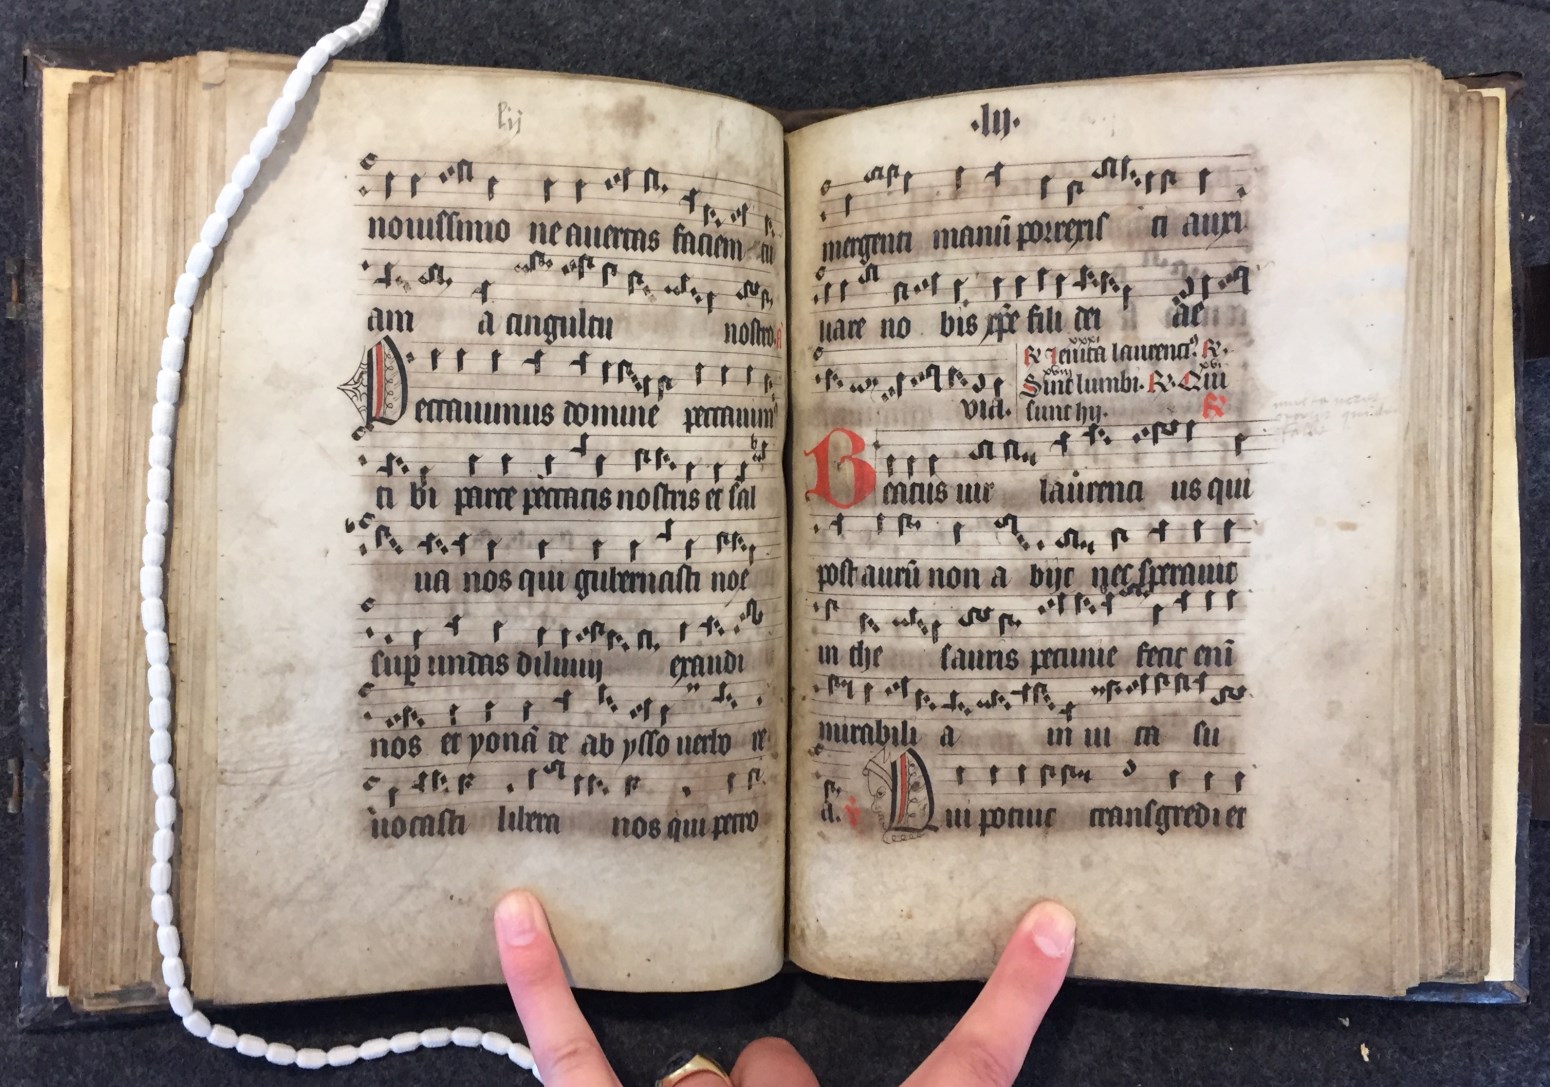 lij
nouissimo ne auertas faciem tu
am a singultu nostro.
Peccauimus domine peccauim9
ti bi parce peccatis nostris et sal
ua nos qui gubernasti noe
sup undas diluuij exaudi
nos et yonā de ab ysso uerbo re
uocasti libera nos qui petro
·lij·
mergenti manū porrexis ti auxi
liare no bis xp̄e fili dei
xxxi
℟ Leuita laurenci9 ℟.
xviij xvi
Sint lumbi. ℟. Qui
uia. sunt hij. ℟
Beatus uir laurenci us qui
post aurū non a bijt nec sperauit
in the sauris pecunie fecit enī
mirabili a in ui ta su
a. ℣ Qui potuit transgredi et